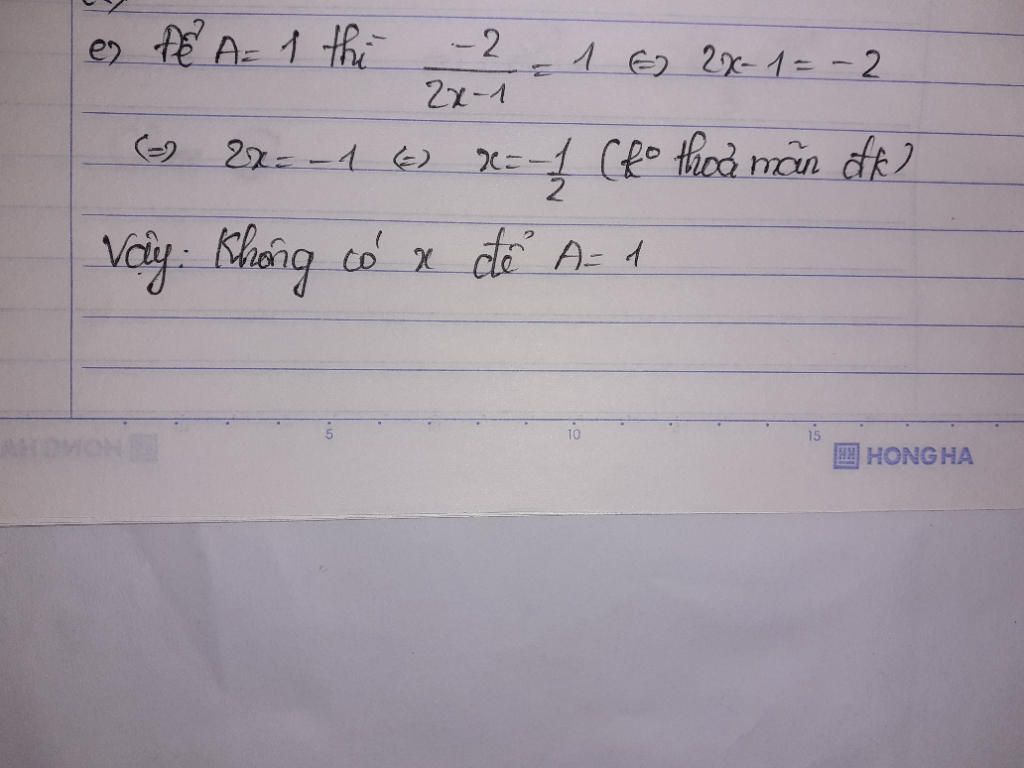 e) Để A = 1 thì \frac{-2}{2x-1} = 1 <=> 2x-1 = -2
<=> 2x = -1 <=> x = -\frac{1}{2} (ko thoả mãn đk)
Vậy: Không có x để A = 1
5 10 15
HONG HA